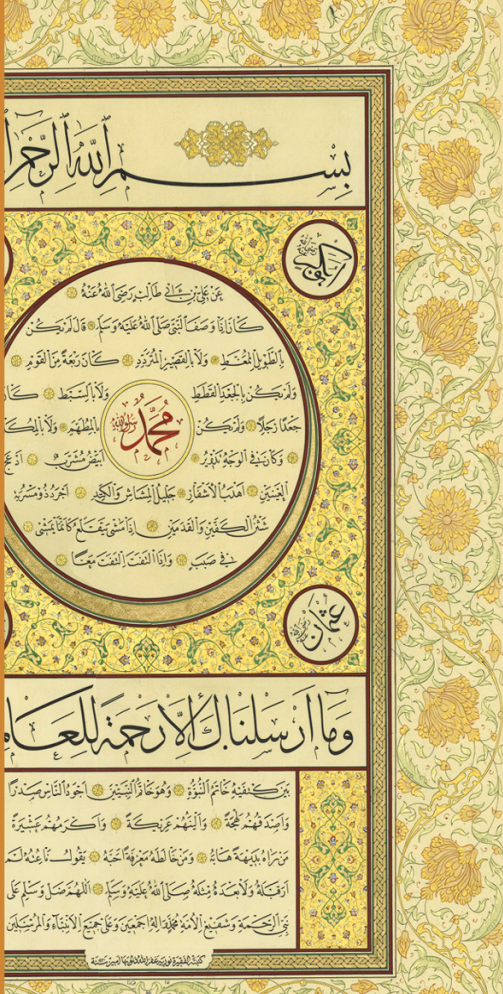 بِسْمِ اللَّهِ الرَّحْمٰ
ابوبكر رضي الله عنه
عَنْ عَلِيِّ بْنِ أَبِي طَالِبٍ رَضِيَ اللهُ عَنْهُ
كَانَ إِذَا وَصَفَ النَّبِيَّ صَلَّى اللهُ عَلَيْهِ وَسَلَّمَ قَالَ لَمْ يَكُنْ
بِالطَّوِيلِ الْمُمَغَّطِ وَلَا بِالْقَصِيرِ الْمُتَرَدِّدِ كَانَ رَبْعَةً مِنَ الْقَوْمِ
وَلَمْ يَكُنْ بِالْجَعْدِ الْقَطَطِ وَلَا بِالسَّبِطِ كَانَ
جَعْدًا رَجِلًا وَلَمْ يَكُنْ بِالْمُطَهَّمِ وَلَا بِالْمُكَ
مُحَمَّد
وَكَانَ فِي الْوَجْهِ تَدْوِيرٌ أَبْيَضُ مُشْرَبٌ أَدْعَجُ
الْعَيْنَيْنِ أَهْدَبُ الْأَشْفَارِ جَلِيلُ الْمُشَاشِ وَالْكَتَدِ أَجْرَدُ ذُو مَسْرُبَةٍ
شَثْنُ الْكَفَّيْنِ وَالْقَدَمَيْنِ إِذَا مَشَى تَقَلَّعَ كَأَنَّمَا يَمْشِي
فِي صَبَبٍ وَإِذَا الْتَفَتَ الْتَفَتَ مَعًا
عُثْمَان
وَمَا أَرْسَلْنَاكَ إِلَّا رَحْمَةً لِلْعَالَمِ
بَيْنَ كَتِفَيْهِ خَاتَمُ النُّبُوَّةِ وَهُوَ خَاتَمُ النَّبِيِّينَ أَجْوَدُ النَّاسِ صَدْرًا
وَأَصْدَقُهُمْ لَهْجَةً وَأَلْيَنُهُمْ عَرِيكَةً وَأَكْرَمُهُمْ عَشِيرَةً
مَنْ رَآهُ بَدِيهَةً هَابَهُ وَمَنْ خَالَطَهُ مَعْرِفَةً أَحَبَّهُ يَقُولُ نَاعِتُهُ لَمْ
أَرَ قَبْلَهُ وَلَا بَعْدَهُ مِثْلَهُ صَلَّى اللهُ عَلَيْهِ وَسَلَّمَ اَللّٰهُمَّ صَلِّ وَسَلِّمْ عَلَى
نَبِيِّ الرَّحْمَةِ وَشَفِيعِ الْأُمَّةِ مُحَمَّدٍ وَآلِهِ أَجْمَعِينَ وَعَلَى جَمِيعِ الْأَنْبِيَاءِ وَالْمُرْسَلِينَ